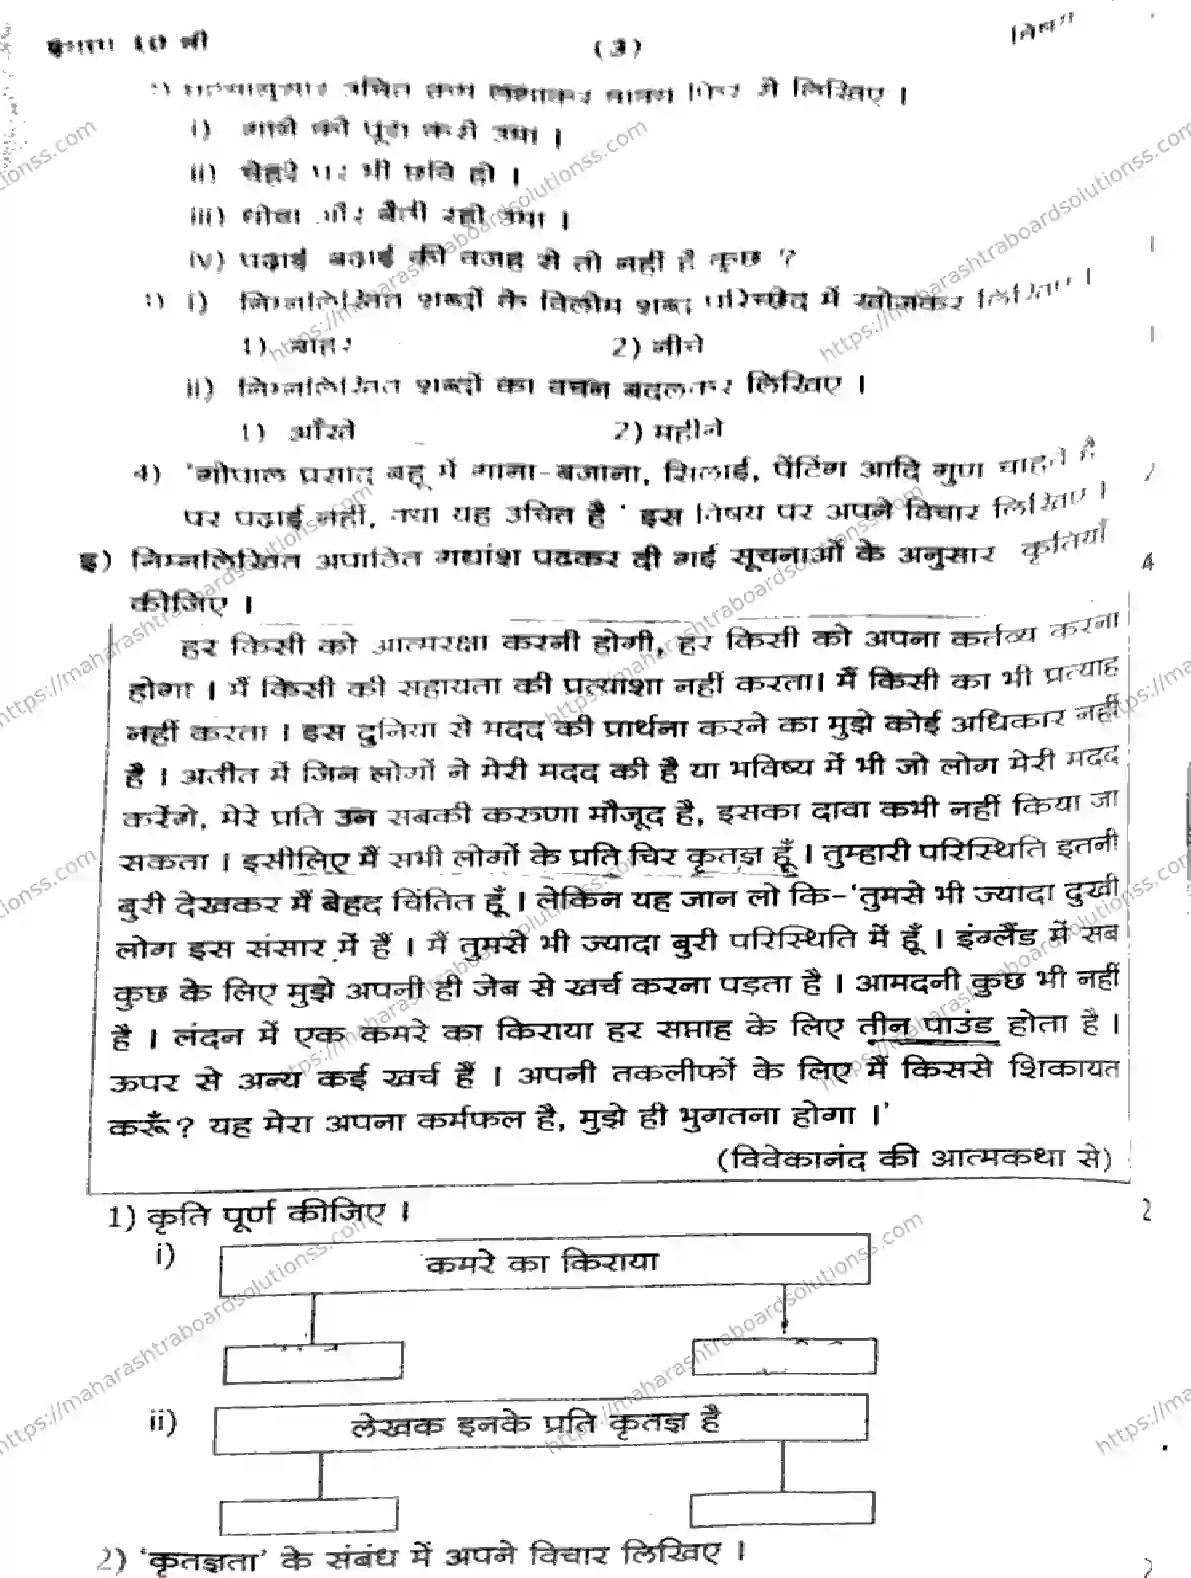 कक्षा 10 वी
(3)
उचित क्रम लगाकर वाक्य फिर से लिखिए ।
i)
ii) चेहरे पर भी छवि हो ।
iii)
iv) पढ़ाई बढ़ाई की वजह से तो नहीं है कुछ ?
i) निम्नलिखित शब्दों के विलोम शब्द परिच्छेद में खोजकर लिखिए ।
1) बाहर
2) नीचे
ii) निम्नलिखित शब्दों का वचन बदलकर लिखिए ।
1) औरते
2) महीने
4) 'गोपाल प्रसाद बहू में गाना-बजाना, सिलाई, पेंटिंग आदि गुण चाहते है
पर पढ़ाई नहीं, क्या यह उचित है ' इस विषय पर अपने विचार लिखिए ।
इ) निम्नलिखित अपठित गद्यांश पढकर दी गई सूचनाओं के अनुसार कृतियाँ
4
कीजिए ।
हर किसी को आत्मरक्षा करनी होगी, हर किसी को अपना कर्तव्य करना
होगा । मैं किसी की सहायता की प्रत्याशा नहीं करता। मैं किसी का भी प्रत्याह
नहीं करता । इस दुनिया से मदद की प्रार्थना करने का मुझे कोई अधिकार नहीं
है । अतीत में जिन लोगों ने मेरी मदद की है या भविष्य में भी जो लोग मेरी मदद
करेंगे, मेरे प्रति उन सबकी करुणा मौजूद है, इसका दावा कभी नहीं किया जा
सकता । इसीलिए मैं सभी लोगों के प्रति चिर कृतज्ञ हूँ । तुम्हारी परिस्थिति इतनी
बुरी देखकर मैं बेहद चिंतित हूँ । लेकिन यह जान लो कि-'तुमसे भी ज्यादा दुखी
लोग इस संसार में हैं । मैं तुमसे भी ज्यादा बुरी परिस्थिति में हूँ । इंग्लैंड में सब
कुछ के लिए मुझे अपनी ही जेब से खर्च करना पड़ता है । आमदनी कुछ भी नहीं
है । लंदन में एक कमरे का किराया हर सप्ताह के लिए तीन पाउंड होता है ।
ऊपर से अन्य कई खर्च हैं । अपनी तकलीफों के लिए मैं किससे शिकायत
करूँ? यह मेरा अपना कर्मफल है, मुझे ही भुगतना होगा ।'
(विवेकानंद की आत्मकथा से)
1) कृति पूर्ण कीजिए ।
2
i)
कमरे का किराया
ii)
लेखक इनके प्रति कृतज्ञ है
2) 'कृतज्ञता' के संबंध में अपने विचार लिखिए ।
2
https://maharashtraboardsolutionss.com